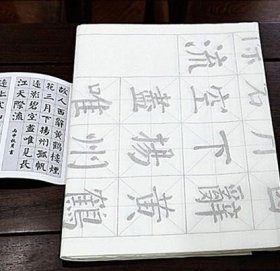 故人西辭黃鶴樓煙
花三月下揚州孤帆
遠影碧空盡唯見長
江天際流
辭黃鶴
月下揚州
空盡唯
流